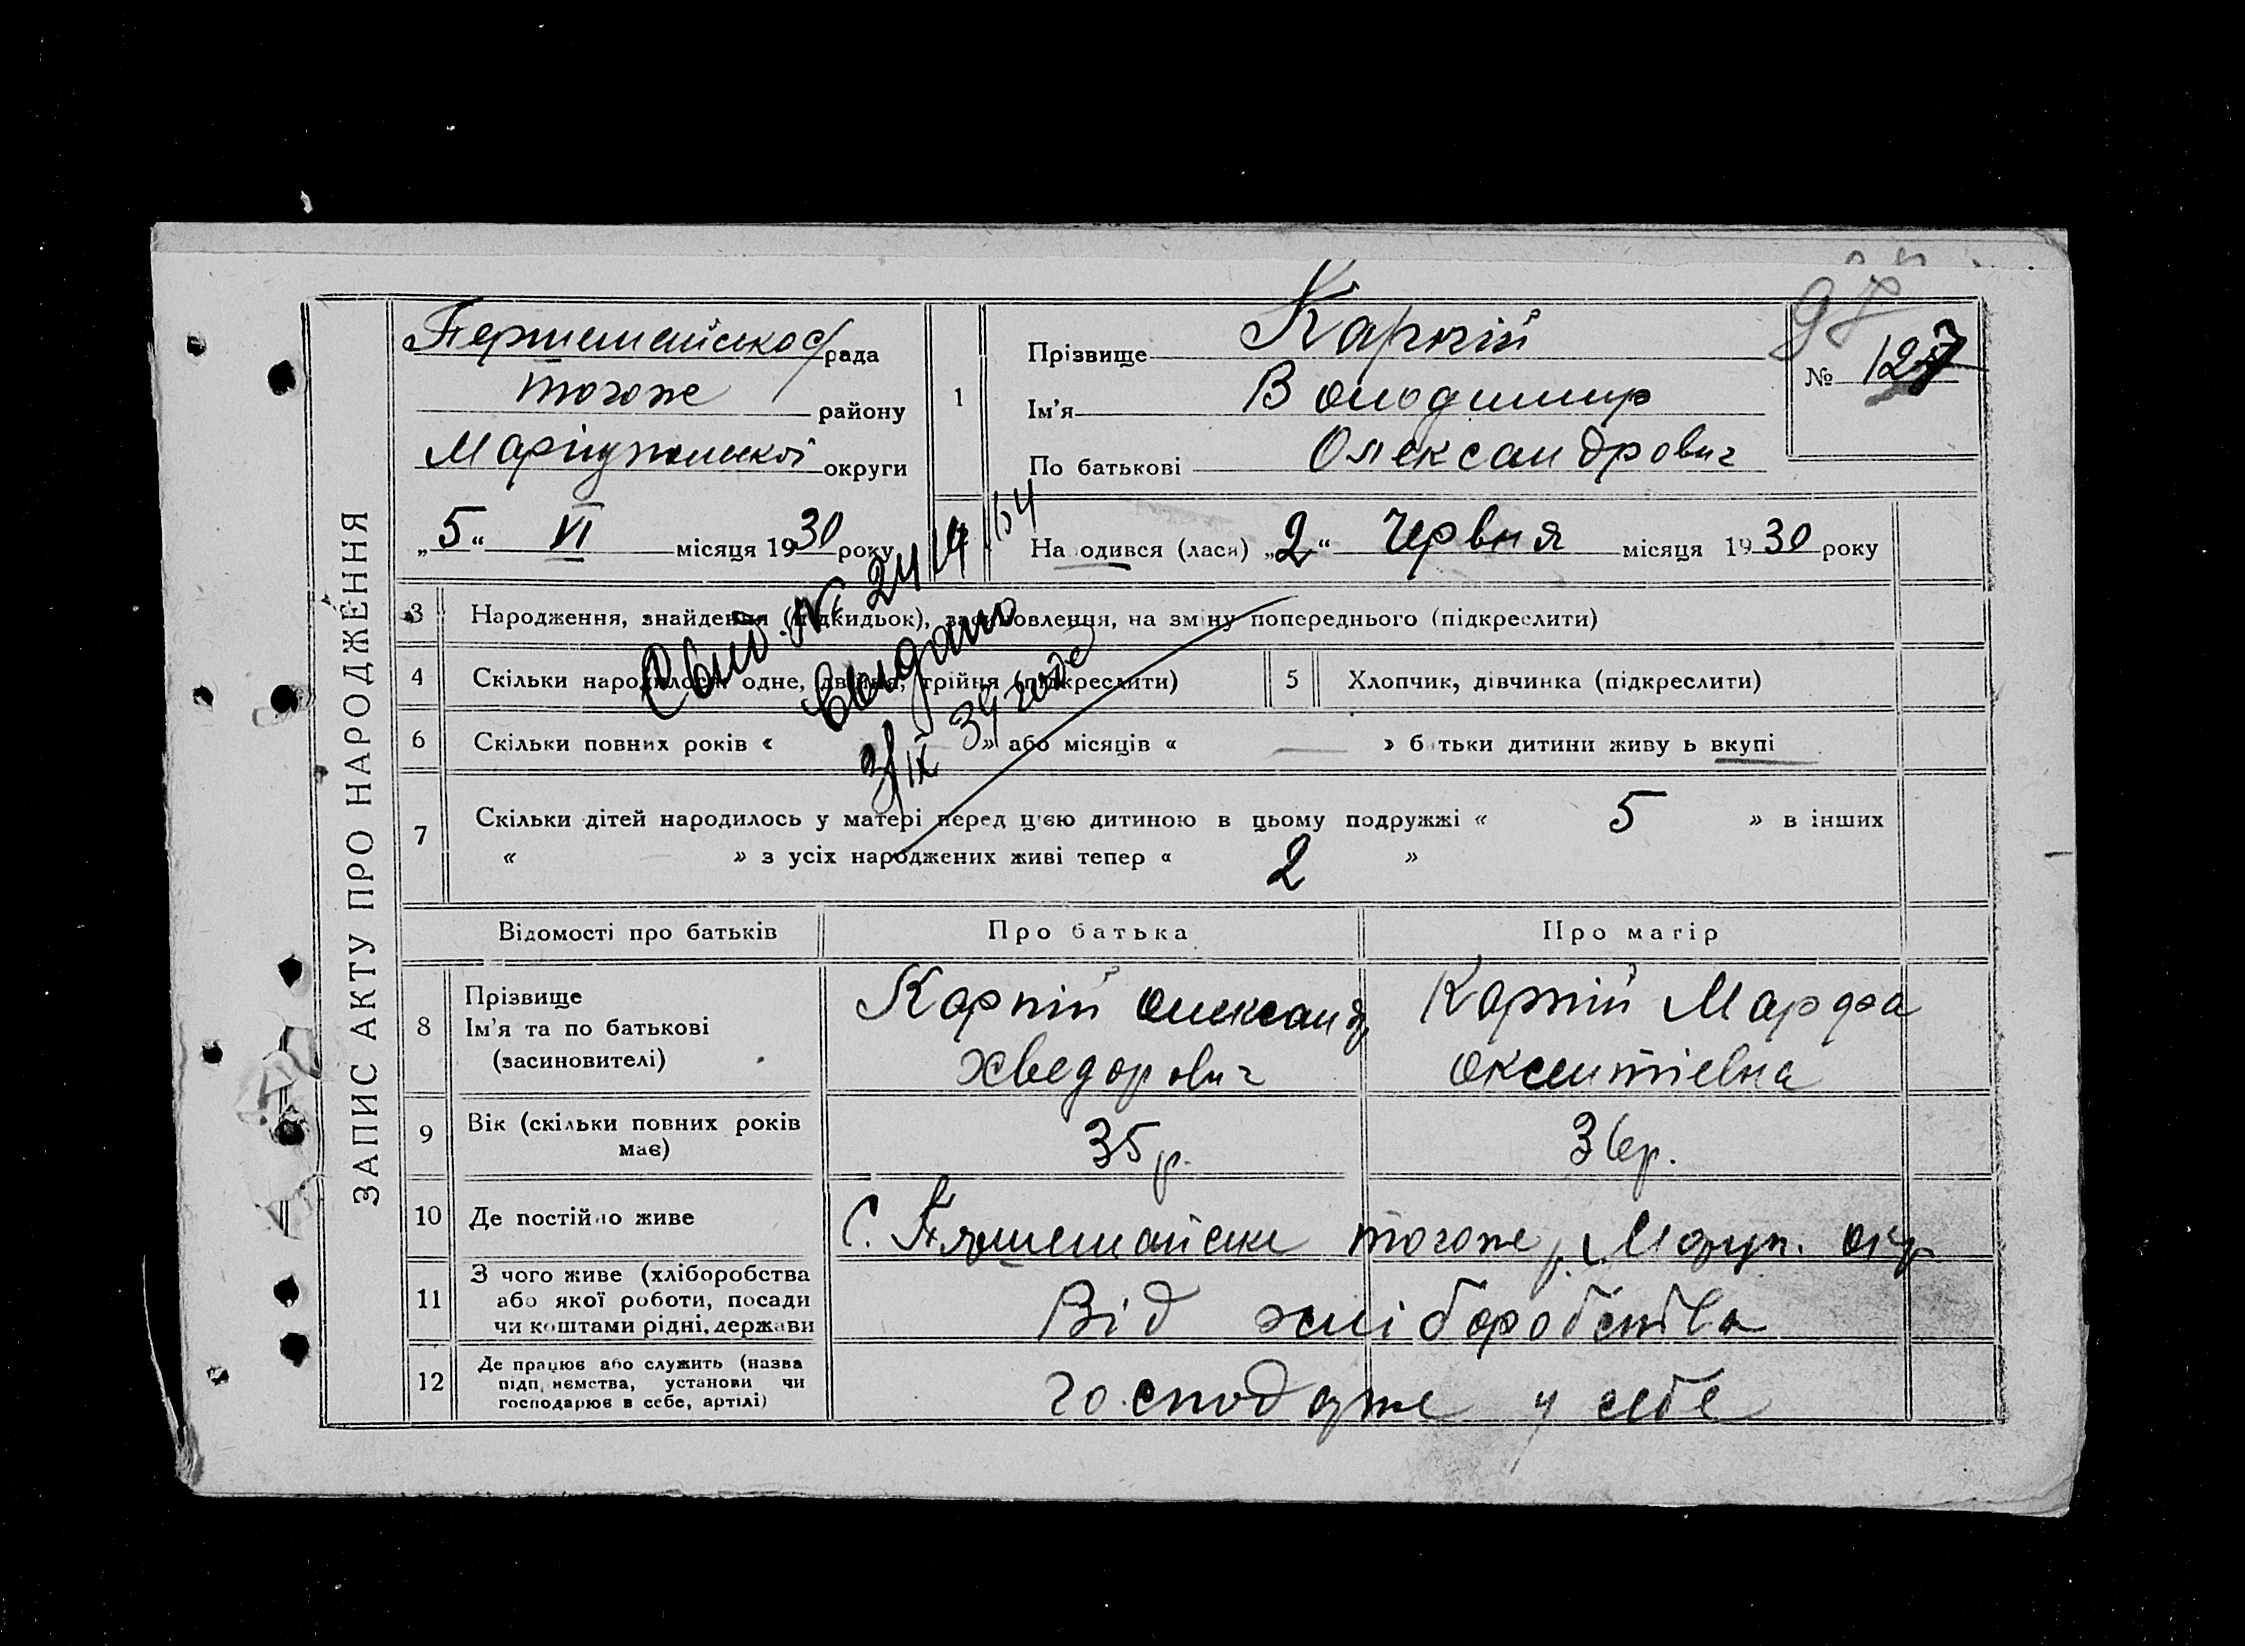 ЗАПИС АКТУ ПРО НАРОДЖЕННЯ
Першемайско с/рада
тогоже району
Маріупольскої округи
„5“ VI місяця 1930 року
1
Прізвище Карпій
Ім'я Володимир
По батькові Олександрович
97
№ 127
Народився (лася) „2“ Червня місяця 1930 року
3 Народження, знайдення (підкидьок), засиновлення, на зміну попереднього (підкреслити)
4 Скільки народилося: одне, двійня, трійня (підкреслити)
5 Хлопчик, дівчинка (підкреслити)
6 Скільки повних років « » або місяців « — » батьки дитини живуть вкупі
Свид. №
видано
3/IX 39 года
7 Скільки дітей народилось у матері перед цією дитиною в цьому подружжі « 5 » в інших
« » з усіх народжених живі тепер « 2 »
Відомості про батьків Про батька Про матір
8 Прізвище
Ім'я та по батькові
(засиновителі)
Карпій Олександр
Хведорович
Карпій Марфа
Оксентіевна
9 Вік (скільки повних років
має)
35 р. 36 р.
10 Де постійно живе
С. Першемайське тогоже р. Маруп. окр
11 З чого живе (хліборобства
або якої роботи, посади
чи коштами рідні, держави
Від хліборобства
12 Де працює або служить (назва
підприємства, установи чи
господарює в себе, артілі)
господарює у себе